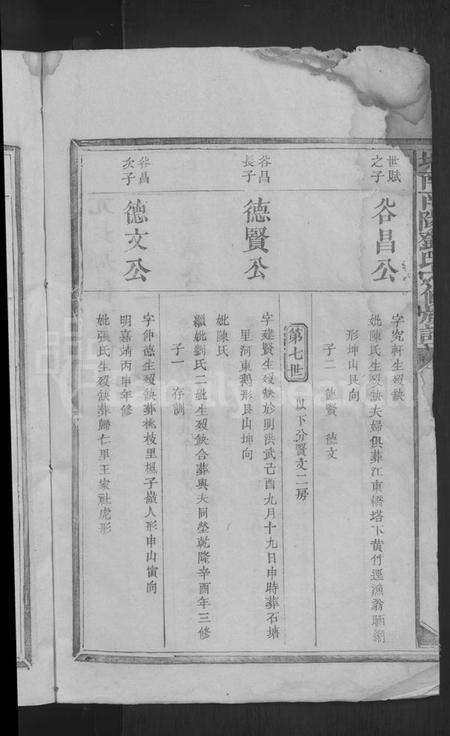 世賦之子
谷昌公
字宪軒生殁缺
妣陳氏生殁缺夫婦俱葬江東橋塔下黃竹逕漁翁晒網
形坤山艮向
子二 德賢 德文
第七世 以下分賢文二房
谷昌長子
德賢公
字建賢生殁缺於明洪武己酉九月十九日申時葬石塘
里河東鵝形艮山坤向
妣陳氏
繼妣劉氏二妣生殁缺合葬與夫同塋乾隆辛酉年三修
子一 存訓
谷昌次子
德文公
字仲德生殁缺葬桃枝里楓子嶺人形申山寅向
明嘉靖丙申年修
妣張氏生殁缺葬歸仁里王家社虎形